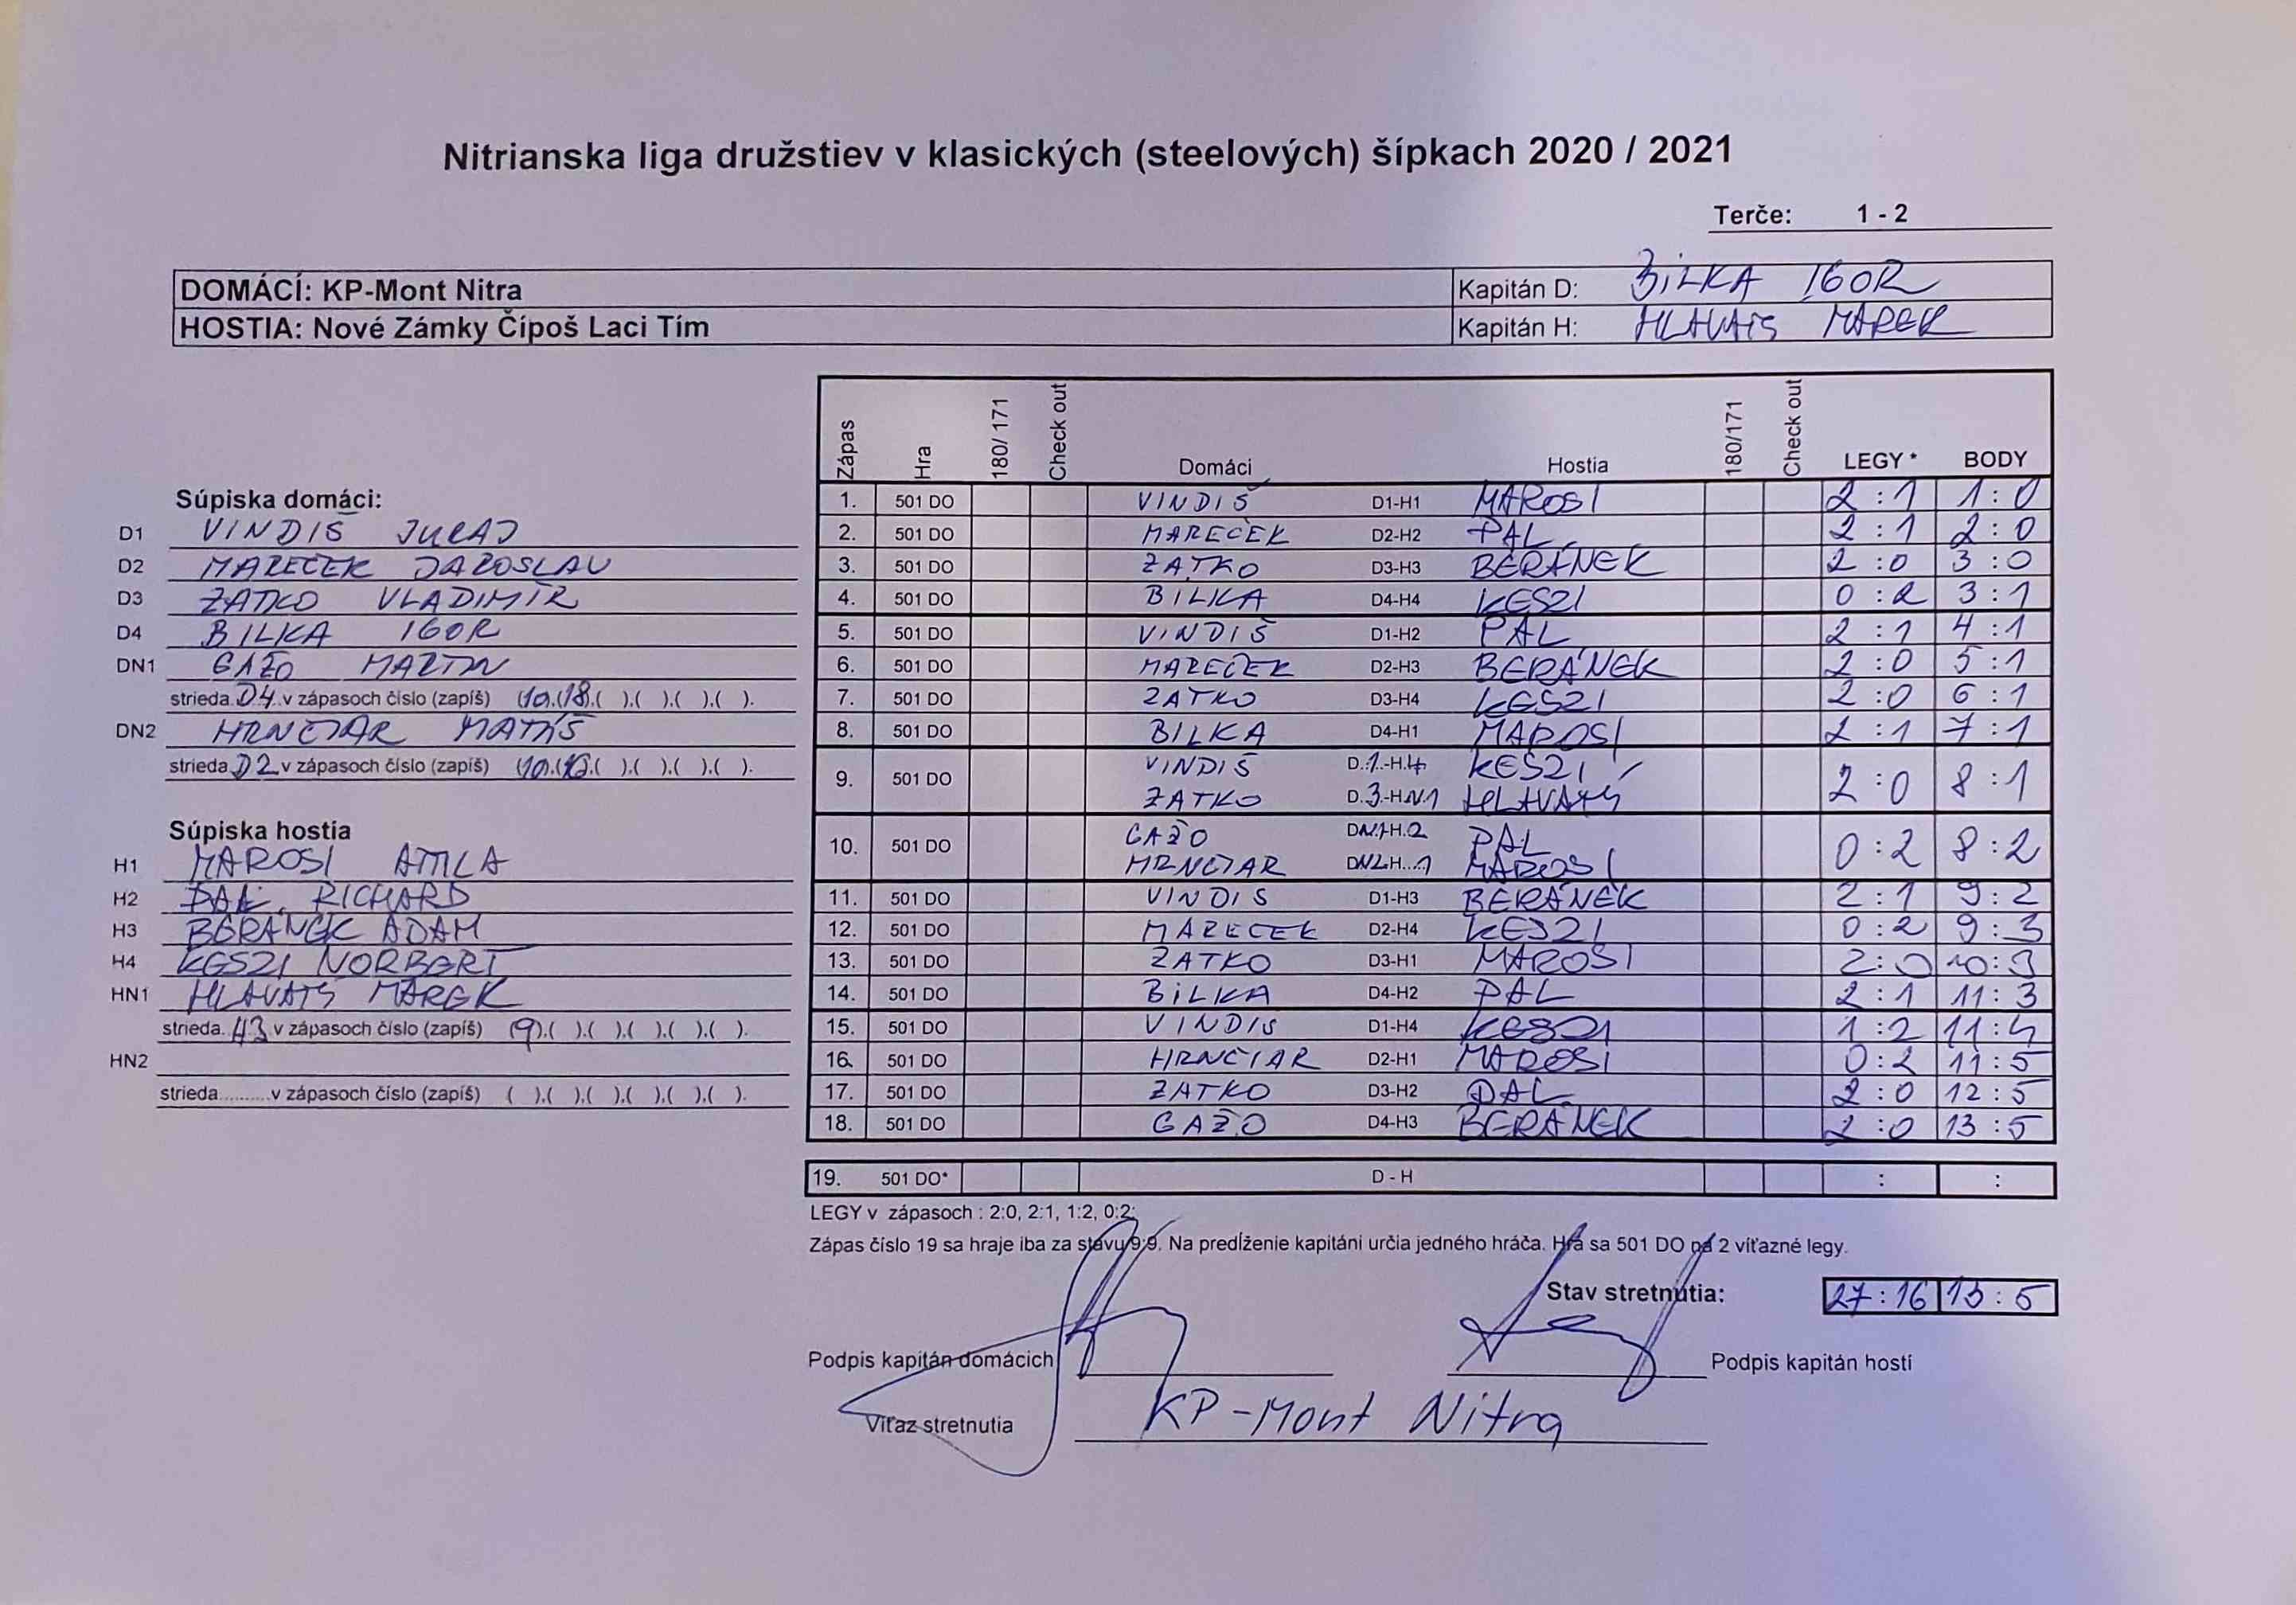 Nitrianska liga družstiev v klasických (steelových) šípkach 2020 / 2021
Terče: 1 - 2
DOMÁCÍ: KP-Mont Nitra Kapitán D: BILKA IGOR
HOSTIA: Nové Zámky Čípoš Laci Tím Kapitán H: HLAVATS MAREK
Súpiska domáci:
D1 VINDIŠ JURAJ
D2 MAREČEK JAROSLAV
D3 ŽATKO VLADIMÍR
D4 BILKA IGOR
DN1 GAŽO MARTIN
strieda D4 v zápasoch číslo (zapíš) (10).(18).( ).( ).( ).( ).
DN2 HRNČIAR MATÚŠ
strieda D2 v zápasoch číslo (zapíš) (10).(16).( ).( ).( ).( ).
Súpiska hostia
H1 MAROSI ATTILA
H2 PAL RICHARD
H3 BERÁNEK ADAM
H4 KESZI NORBERT
HN1 HLAVATS MAREK
strieda H3 v zápasoch číslo (zapíš) (9).( ).( ).( ).( ).( ).
HN2
strieda..........v zápasoch číslo (zapíš) ( ).( ).( ).( ).( ).( ).
Zápas Hra 180/ 171 Check out Domáci Hostia 180/171 Check out LEGY * BODY
1. 501 DO VINDIŠ D1-H1 MAROSI 2 : 1 1 : 0
2. 501 DO MAREČEK D2-H2 PAL 2 : 1 2 : 0
3. 501 DO ŽATKO D3-H3 BERÁNEK 2 : 0 3 : 0
4. 501 DO BILKA D4-H4 KESZI 0 : 2 3 : 1
5. 501 DO VINDIŠ D1-H2 PAL 2 : 1 4 : 1
6. 501 DO MAREČEK D2-H3 BERÁNEK 2 : 0 5 : 1
7. 501 DO ZATKO D3-H4 KESZI 2 : 0 6 : 1
8. 501 DO BILKA D4-H1 MAROSI 2 : 1 7 : 1
9. 501 DO VINDIŠ D.1.-H.4 KESZI 2 : 0 8 : 1
ZATKO D.3.-H.N.1 HLAVATS
10. 501 DO GAŽO DN.1-H.2 PAL 0 : 2 8 : 2
HRNČIAR DN2-H...1 MAROSI
11. 501 DO VINDIS D1-H3 BERÁNEK 2 : 1 9 : 2
12. 501 DO MARECEK D2-H4 KESZI 0 : 2 9 : 3
13. 501 DO ZATKO D3-H1 MAROSI 2 : 0 10 : 3
14. 501 DO BILKA D4-H2 PAL 2 : 1 11 : 3
15. 501 DO VINDIS D1-H4 KESZI 1 : 2 11 : 4
16. 501 DO HRNČIAR D2-H1 MAROSI 0 : 2 11 : 5
17. 501 DO ZATKO D3-H2 PAL 2 : 0 12 : 5
18. 501 DO GAŽO D4-H3 BERÁNEK 2 : 0 13 : 5
19. 501 DO* D - H : :
LEGY v zápasoch : 2:0, 2:1, 1:2, 0:2;
Zápas číslo 19 sa hraje iba za stavu 9:9. Na predĺženie kapitáni určia jedného hráča. Hrá sa 501 DO na 2 víťazné legy.
Stav stretnutia: 27 : 16 13 : 5
Podpis kapitán domácich Podpis kapitán hostí
Víťaz stretnutia KP-Mont Nitra